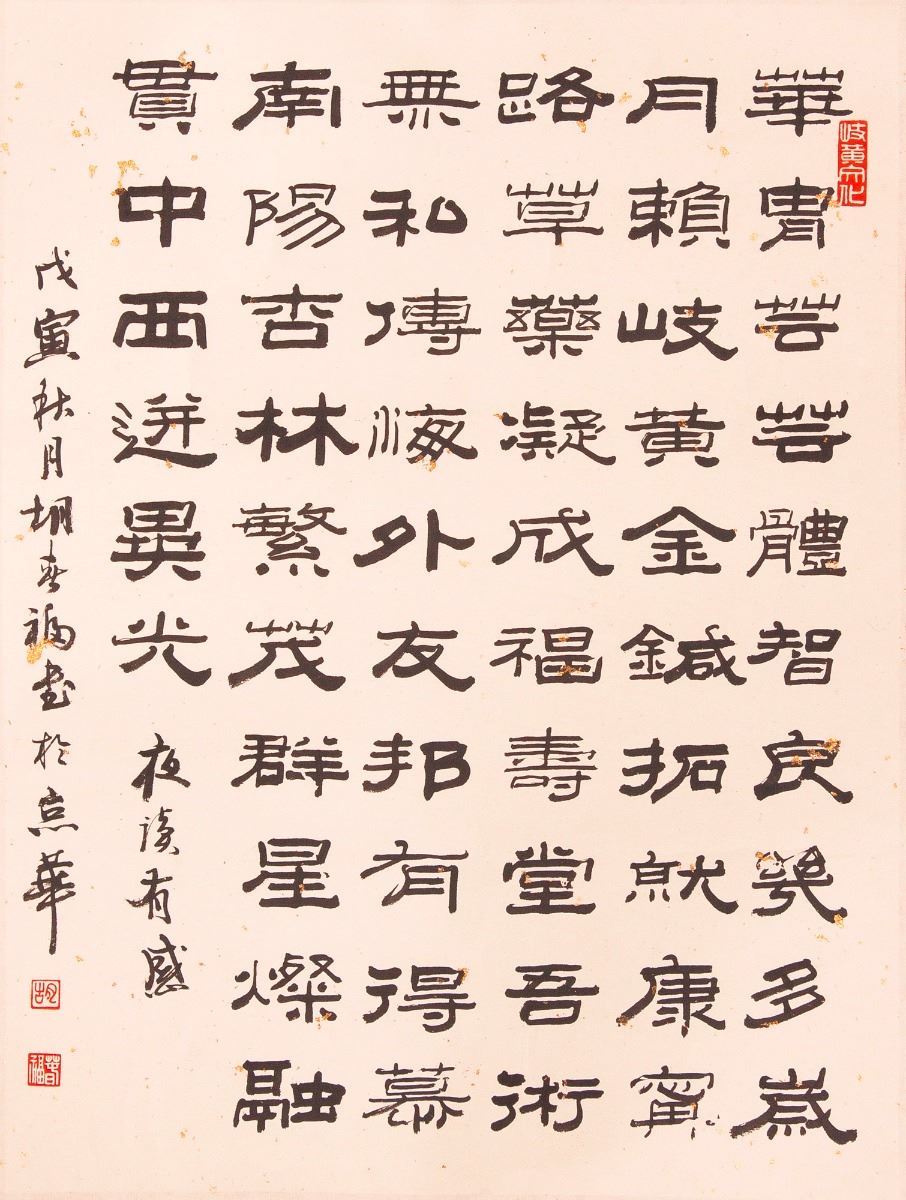 岐黃文化
華胄芸芸體智良幾多歲
月賴岐黃金鍼拓就康寧
路草藥凝成福壽堂吾術
無私傳海外友邦有得慕
南陽杏林繁茂群星燦融
貫中西迸異光
夜讀有感
戊寅秋月胡春福書於京華
胡
春福